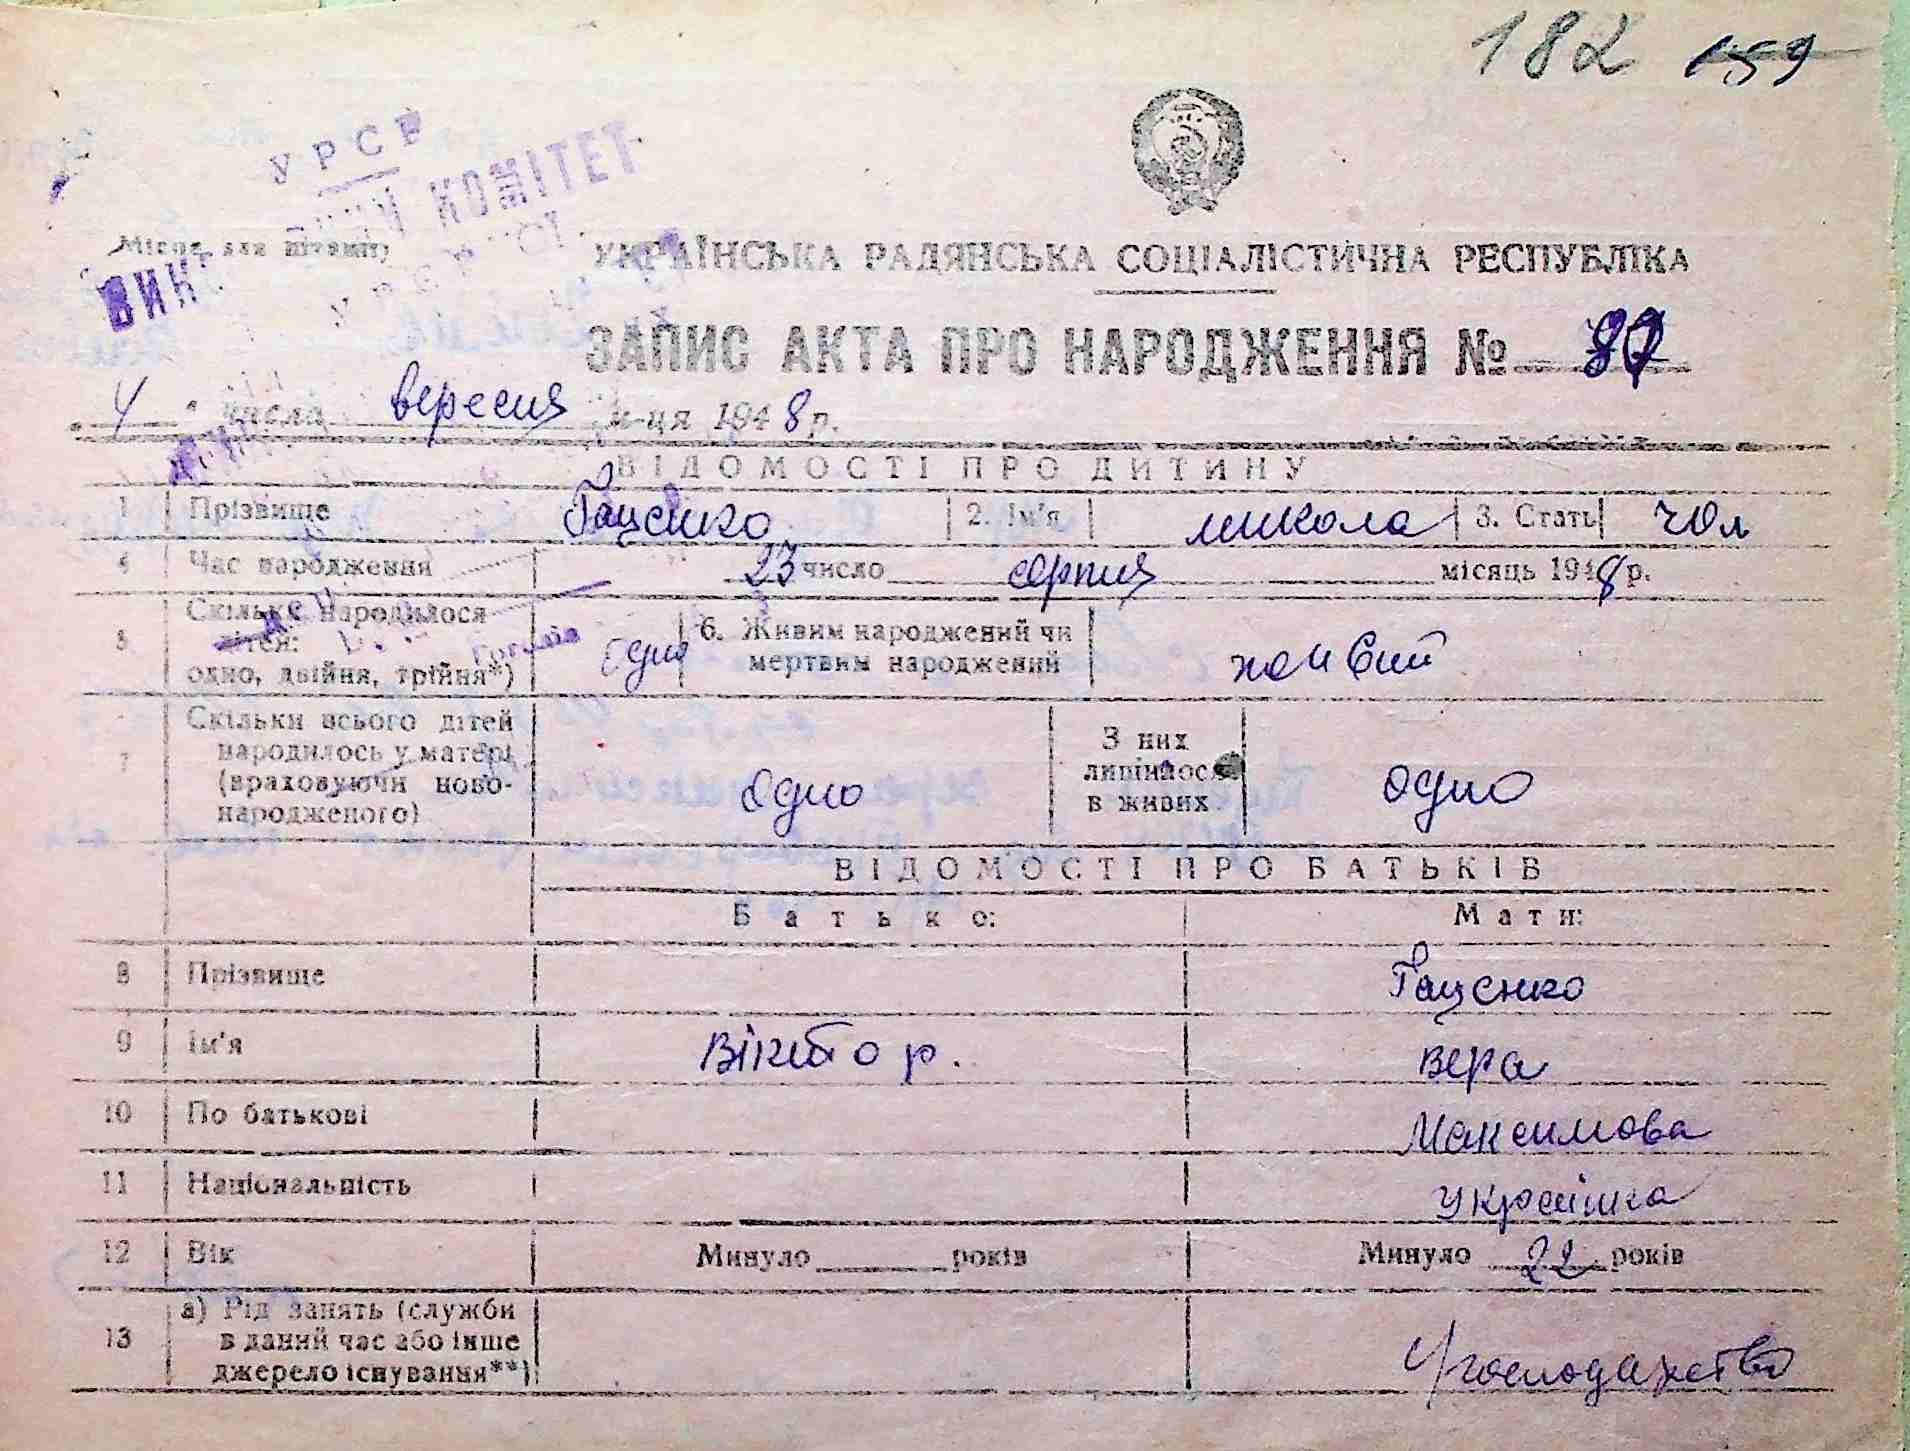 182 159
УРСР
КОМІТЕТ
Місце для штампу
ВИК
УКРАЇНСЬКА РАДЯНСЬКА СОЦІАЛІСТИЧНА РЕСПУБЛІКА
ЗАПИС АКТА ПРО НАРОДЖЕННЯ №
"4" числа вересня м-ця 1948 р.
ВІДОМОСТІ ПРО ДИТИНУ
1 Прізвище Гаценко 2. Ім'я микола 3. Стать чол
4 Час народження 23 число серпня місяць 1948 р.
5 Скільки народилося дітей: одно, двійня, трійня*) одно 6. Живим народжений чи мертвим народжений живий
7 Скільки всього дітей народилось у матері (враховуючи новонародженого) одно З них лишилося в живих одно
ВІДОМОСТІ ПРО БАТЬКІВ
Батько: Мати:
8 Прізвище Гаценко
9 Ім'я Віктор. вера
10 По батькові Максимова
11 Національність українка
12 Вік Минуло років Минуло 22 років
13 а) Рід занять (служби в даний час або інше джерело існування**) У господарстві